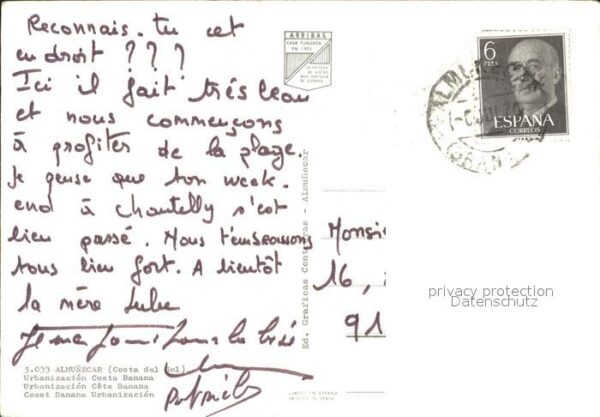 Reconnais-tu cet
endroit ? ? ?
Ici il fait très beau
et nous commençons
à profiter de la plage.
Je pense que ton week-
end à Chantilly s'est
bien passé. Nous t'embrassons
tous bien fort. A bientôt
la mère
Monsi
16,
91
ARRIBAS
CASA FUNDADA
EN 1905
6
PTAS
ESPAÑA
CORREOS
Ed. Graficas - Almuñecar
5.033 ALMUÑECAR (Costa del Sol)
Urbanización Costa Banana
Urbanización Côte Banana
Coast Banana Urbanización
privacy protection
Datenschutz